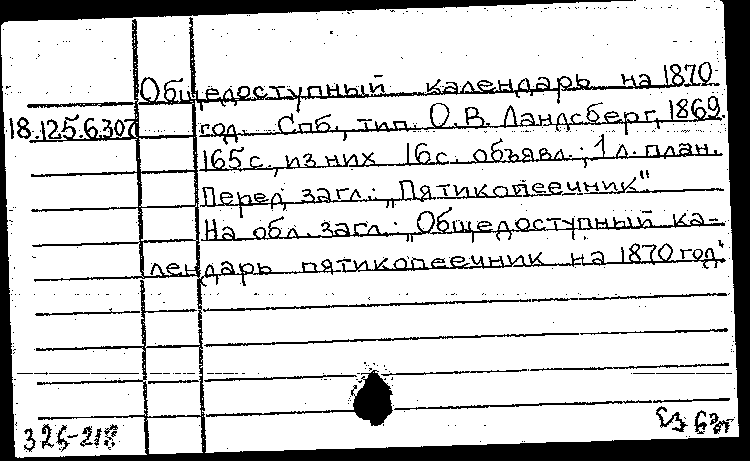 Общедоступный календарь на 1870
18.125.6.307 год. Спб., тип. О.В. Ландсберг, 1869.
165 с., из них 16 с. объявл.; 1 л. план.
Перед загл.: „Пятикопеечник".
На обл. загл.: „Общедоступный ка-
лендарь пятикопеечник на 1870 год."
326-218